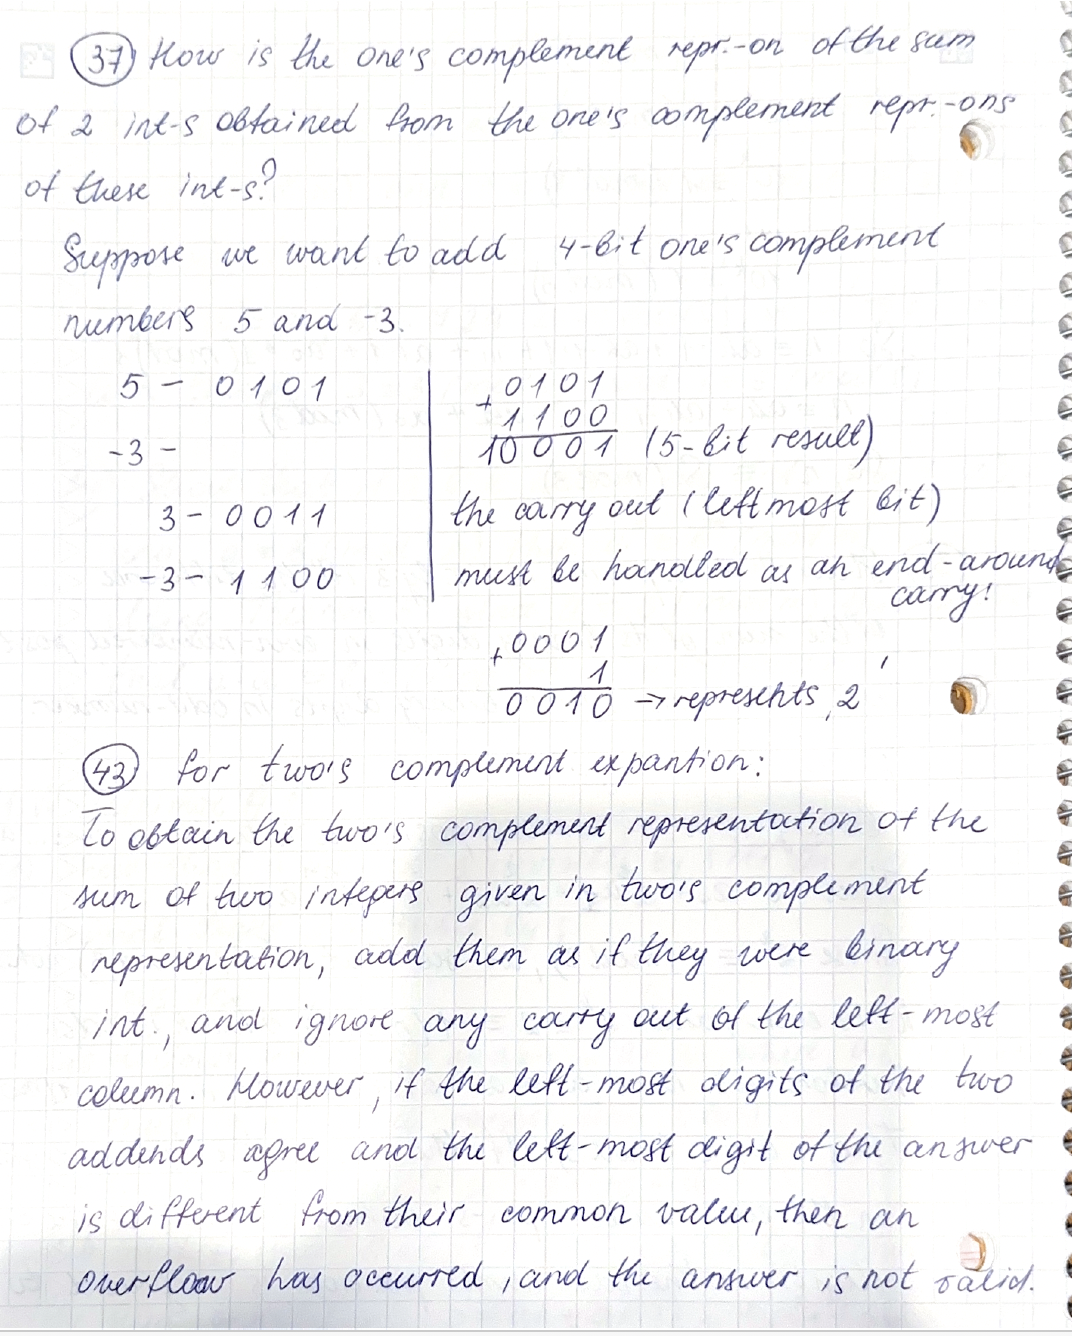 37 How is the one's complement repr.-on of the sum
of 2 int-s obtained from the one's complement repr.-ons
of these int-s?
Suppose we want to add 4-bit one's complement
numbers 5 and -3.
5 - 0101
-3 -
3 - 0011
-3 - 1100
+0101
1100
10001 (5-bit result)
the carry out (leftmost bit)
must be handled as an end-around
carry!
+0001
1
0010 → represents 2
43 for two's complement expantion:
To obtain the two's complement representation of the
sum of two integers given in two's complement
representation, add them as if they were binary
int., and ignore any carry out of the left-most
column. However, if the left-most digits of the two
addends agree and the left-most digit of the answer
is different from their common value, then an
overflow has occurred, and the answer is not valid.